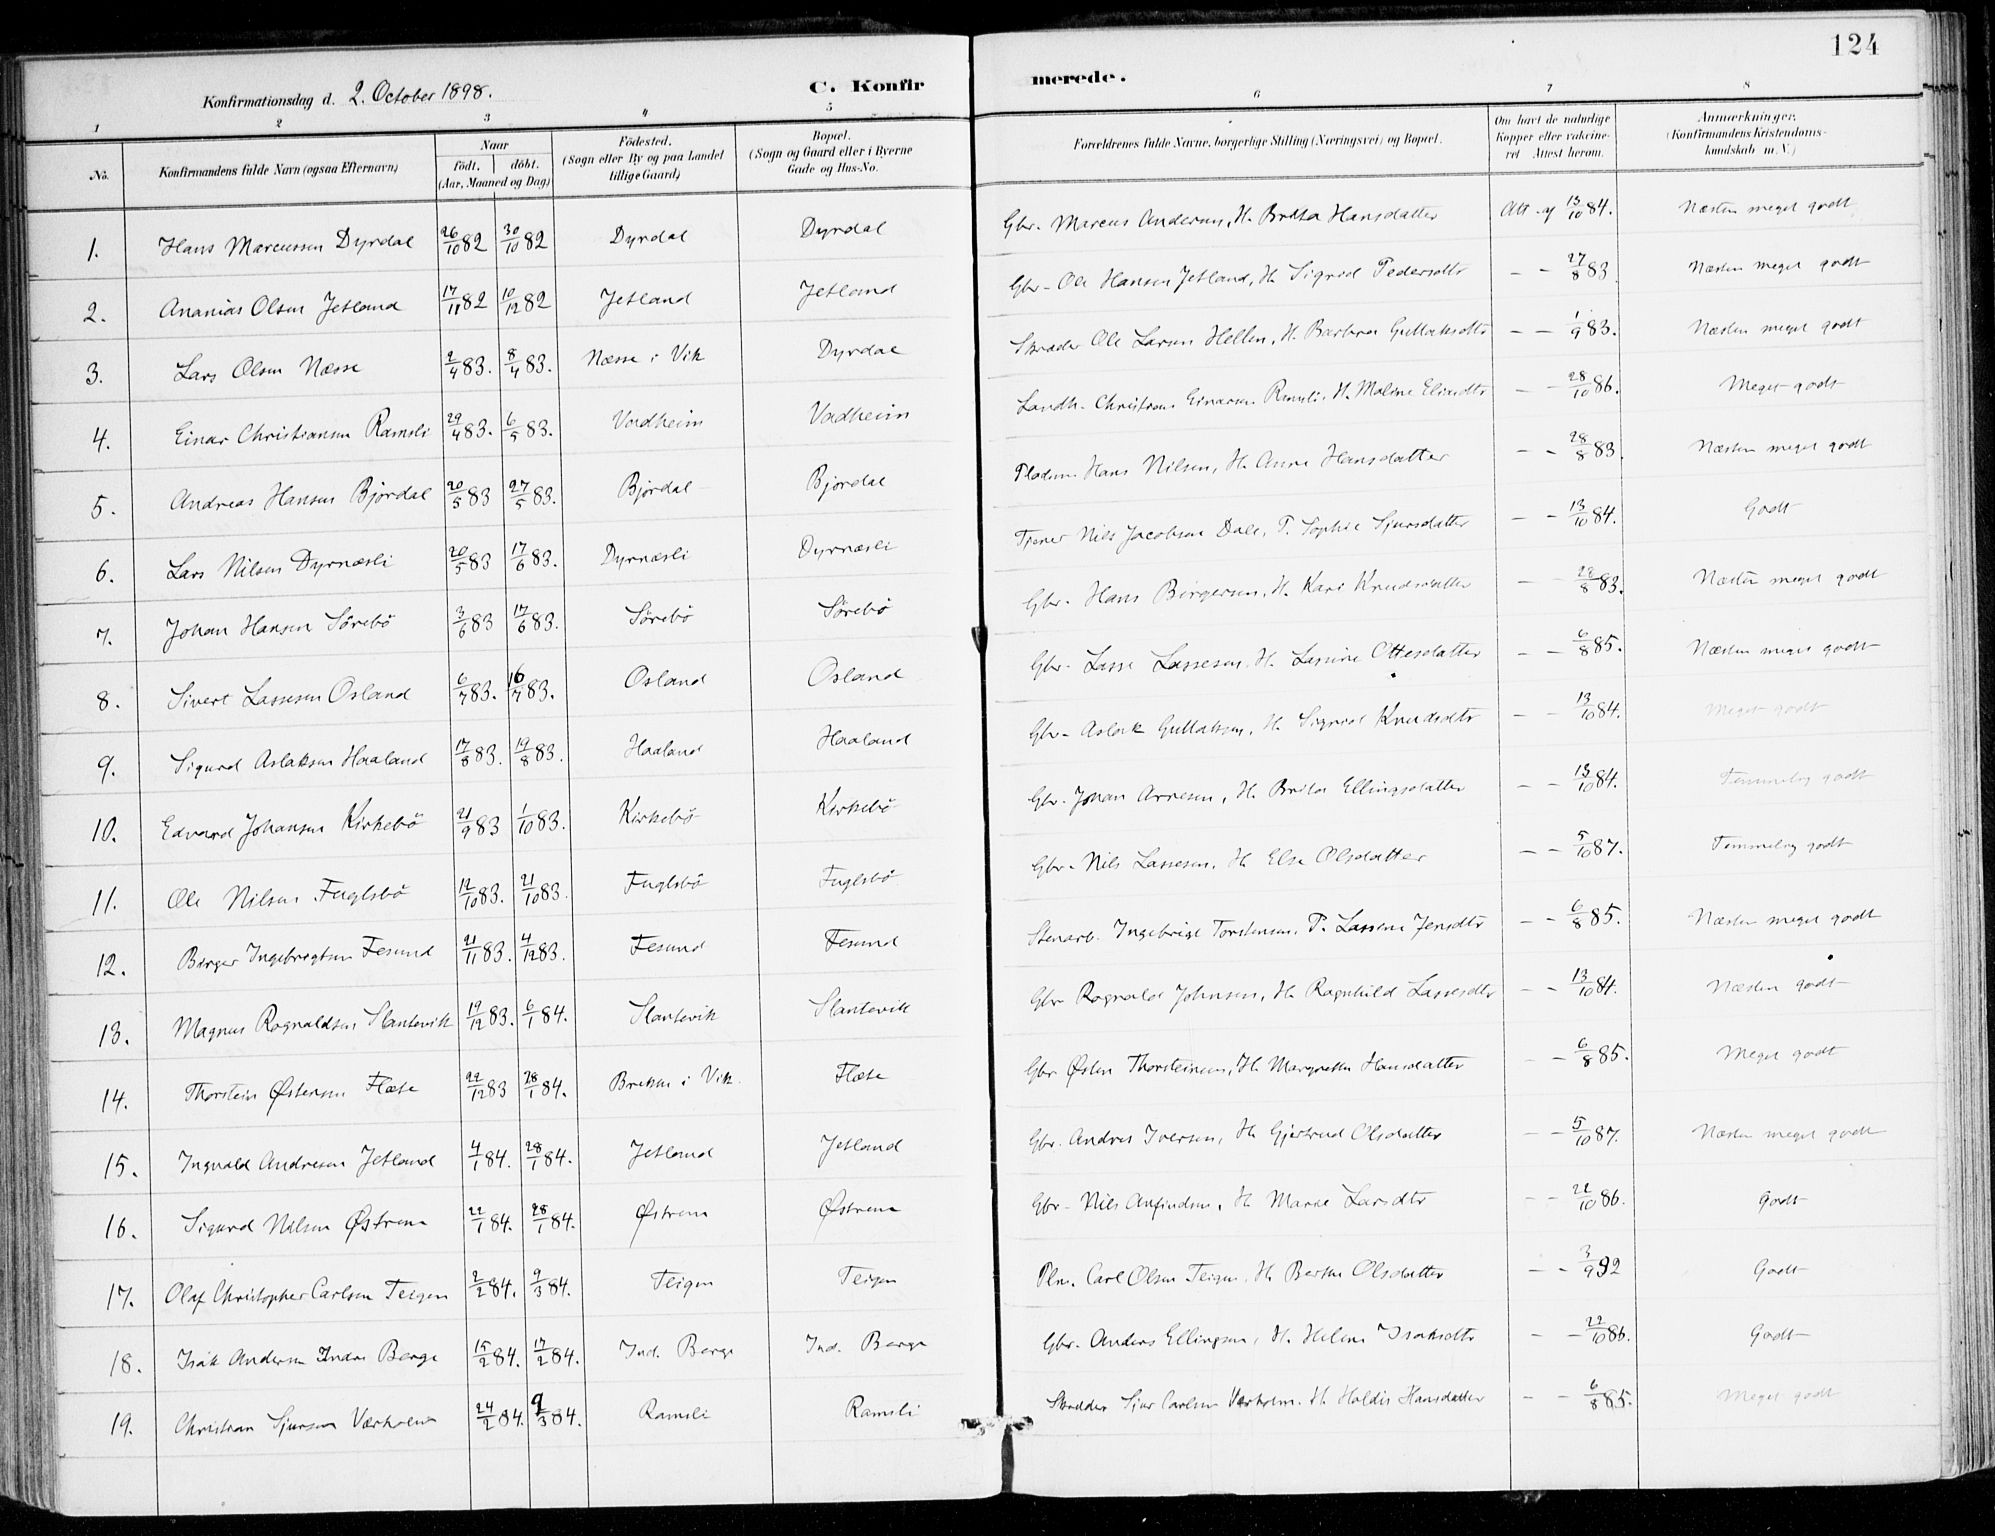 124
Konfirmationsdag d. 2. October 1898. C. Konfirmerede.
1 2 3 4 5 6 7 8
No. Konfirmandens fulde Navn (ogsaa Efternavn) Naar født. døbt. (Aar, Maaned og Dag) Fødested. (Sogn eller By og paa Landet tillige Gaard) Bopæl. (Sogn og Gaard eller i Byerne Gade og Hus-No. Forældrenes fulde Navne, borgerlige Stilling (Næringsvei) og Bopæl. Om havt de naturlige Kopper eller vakcineret. Attest herom. Anmærkninger. (Konfirmandens Kristendomskundskab m. V.)
1. Hans Marcussen Dyrdal 26/10 82 30/10 82 Dyrdal Dyrdal Gbr. Marcus Andersen, H. Britta Hansdatter Att. af 13/10 84. Næsten meget godt
2. Ananias Olsen Jetland 17/11 82 10/12 82 Jetland Jetland Gbr. Ole Hansen Jetland, H. Sigrid Pedersdtr — — 27/8 83. Næsten meget godt
3. Lars Olsen Næsse 2/4 83. 8/4 83. Næsse i Vik Dyrdal Skrædder Ole Larsen Hellen, H. Barbra Guttaksdtr — — 1/9 83. Næsten meget godt
4. Einar Christiansen Ramsli 29/4 83. 6/5 83. Vadheim Vadheim Landh. Christian Einarsen Ramsli, H. Maline Eliasdtr — — 28/10 86. Meget godt
5. Andreas Hansen Bjørdal 20/5 83 27/5 83. Bjørdal Bjørdal Pladsm. Hans Nilsen, H. Anna Hansdatter — — 28/8 83. Næsten meget godt
6. Lars Nilsen Dyrnæsli 20/5 83 17/6 83. Dyrnæsli Dyrnæsli Tjener Nils Jacobsen Dale, P. Sophie Sjursdatter — — 13/10 84. Godt
7. Johan Hansen Sørebø 3/6 83 17/6 83. Sørebø Sørebø Gbr. Hans Børgersen, H. Kari Knudsdatter — — 28/8 83. Næsten meget godt
8. Sivert Lassesen Osland 6/7 83. 16/7 83. Osland Osland Gbr. Lasse Lassesen, H. Lassine Ottesdatter — — 6/8 85. Næsten meget godt
9. Sigurd Aslaksen Haaland 17/8 83. 19/8 83. Haaland Haaland Gbr. Aslak Guttaksen, H. Sigrid Knudsdtr — — 13/10 84. Meget godt
10. Edvard Johansen Kirkebø 21/9 83 1/10 83. Kirkebø Kirkebø Gbr. Johan Arnesen, H. Britta Ellingsdatter — — 13/10 84. Temmelig godt
11. Ole Nilsen Fuglsbø 12/10 83. 21/10 83. Fuglsbø Fuglsbø Gbr. Nils Lassesen, H. Else Olsdatter — — 5/10 87. Temmelig godt
12. Børger Ingebrigtsen Fesund 21/11 83. 4/12 83. Fesund Fesund Stenarb. Ingebrigt Torstensen, P. Lassine Jensdtr — — 6/8 85. Næsten meget godt
13. Magnus Rognaldsen Slautevik 19/12 83. 6/1 84. Slautevik Slautevik Gbr Rognald Johnsen, H. Ragnhild Lassesdtr — — 13/10 84. Næsten godt
14. Thorstein Østensen Flæte 22/12 83 28/1 84. Brekke i Vik. Flæte Gbr Østen Thorsteinsen, H. Margrethe Hansdatter — — 6/8 85. Meget godt
15. Ingvald Andresen Jetland 4/1 84. 28/1 84. Jetland Jetland Gbr. Andres Iversen, H. Gjertrud Olsdatter — — 5/10 87. Næsten meget godt
16. Sigurd Nilsen Østrem 22/1 84. 28/1 84. Østrem Østrem Gbr. Nils Anfindsen, H. Marie Larsdtr — — 22/10 86. Godt
17. Olaf Christopher Carlsen Teigen 2/2 84. 9/3 84. Teigen Teigen Plm. Carl Olsen Teigen, H. Berthe Olsdatter — — 3/9 92 Godt
18. Isak Andersen Indre Berge 15/2 84. 17/2 84. Ind. Berge Ind. Berge Gbr. Anders Ellingsen, H. Helene Isaksdtr — — 22/10 86. Godt
19. Christian Sjursen Værholm 24/2 84. 9/3 84. Ramsli Ramsli Skrædder Sjur Carlsen Værholm. H. Haldis Hansdatter — — 6/8 85. Meget godt